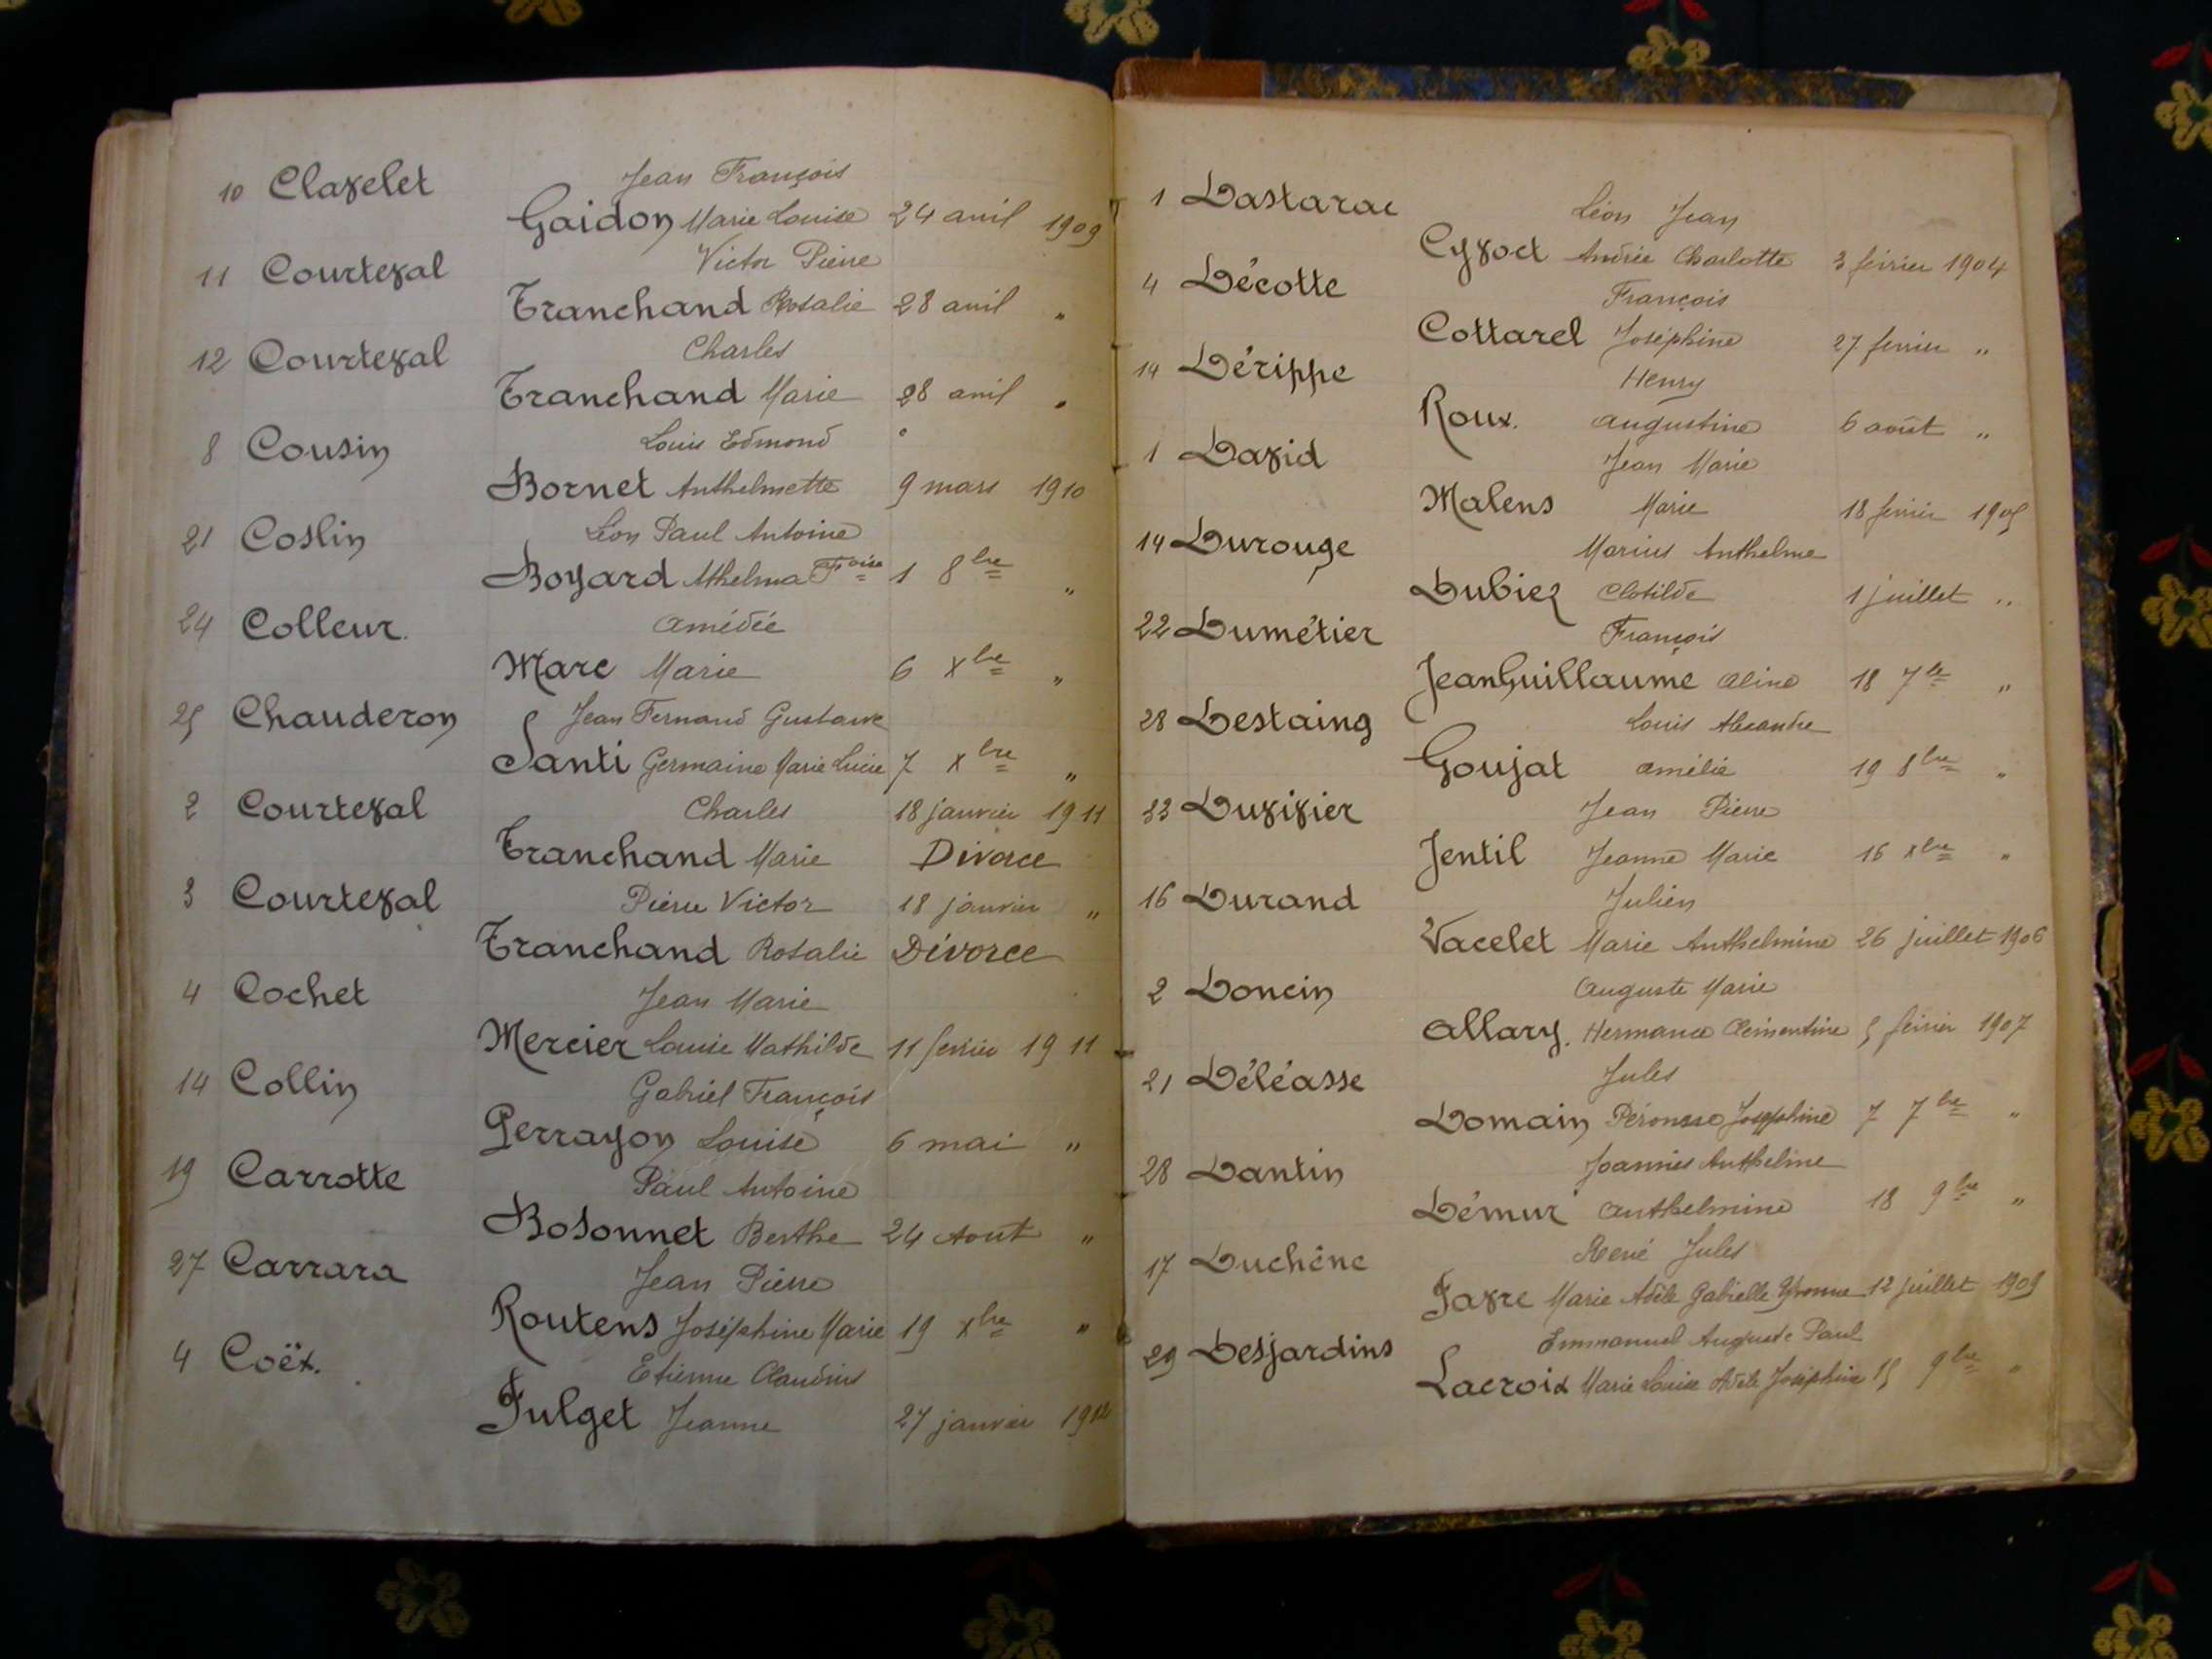 10 Clavelet Jean François
Gaidon Marie Louise 24 avril 1909
11 Courteval Victor Pierre
Tranchand Rosalie 28 avril "
12 Courteval Charles
Tranchand Marie 28 avril "
8 Cousin Louis Edmond
Bornet Anthelmette 9 mars 1910
21 Coslin Léon Paul Antoine
Boyard Athelma Foise 1 8bre "
24 Colleur. Amédée
Marc Marie 6 Xbre "
25 Chauderon Jean Fernand Gustave
Santi Germaine Marie Lucie 7 Xbre "
2 Courteval Charles 18 janvier 1911
Tranchand Marie Divorce
3 Courteval Pierre Victor 18 janvier "
Tranchand Rosalie Divorce
4 Cochet Jean Marie
Mercier Louise Mathilde 11 février 1911
14 Collin Gabriel François
Perrayon Louise 6 mai "
19 Carrotte Paul Antoine
Bosonnet Berthe 24 Aout "
27 Carrara Jean Pierre
Routens Joséphine Marie 19 Xbre "
4 Coëx. Etienne Claudius
Fulget Jeanne 27 janvier
1 Dastarac Léon Jean
Cyvoct Andrée Charlotte 3 février 1904
4 Décotte François
Cottarel Joséphine 27 février "
14 Dérippe Henry
Roux. Augustine 6 août "
1 David Jean Marie
Malens Marie 18 février 1905
14 Durouge Marius Anthelme
Dubiez Clotilde 1 juillet "
22 Dumétier François
JeanGuillaume Aline 18 7bre "
28 Destaing Louis Alexandre
Goujat Amélie 19 8bre "
33 Duvivier Jean Pierre
Jentil Jeanne Marie 16 Xbre "
16 Durand Julien
Vacelet Marie Anthelmine 26 juillet 1906
2 Doncin Auguste Marie
Allary. Hermance Clémentine 5 février 1907
21 Déléasse Jules
Domain Péronsse Josephine 7 7bre "
28 Dantin Joannès Anthelme
Démur Anthelmine 18 9bre "
17 Duchêne René Jules
Favre Marie Adèle Gabrielle Yvonne 12 juillet 1909
29 Desjardins Emmanuel Auguste Paul
Lacroix Marie Louise Adèle Joséphine 15 9bre "